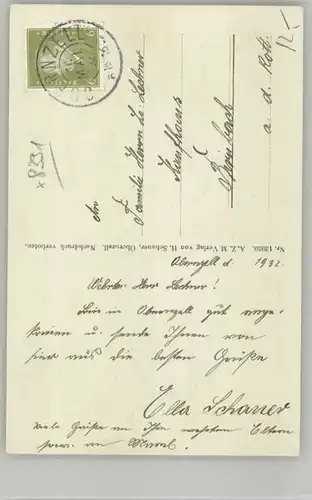 12,-
OBERNZELL
x 8291
An
Familie Herrn Lechner
Kaufhaus
Birnbach
a. d. Rott.
Nr. 13059. A. Z. M. Verlag von H. Schauer, Obernzell. Nachdruck verboten.
Obernzell d. 1932.
Werter Herr Lechner!
Bin in Obernzell gut ange-
kommen u. sende Ihnen von
hier aus die besten Grüße
Ella Schauer
viele Grüße an Ihre werten Eltern
sow. an